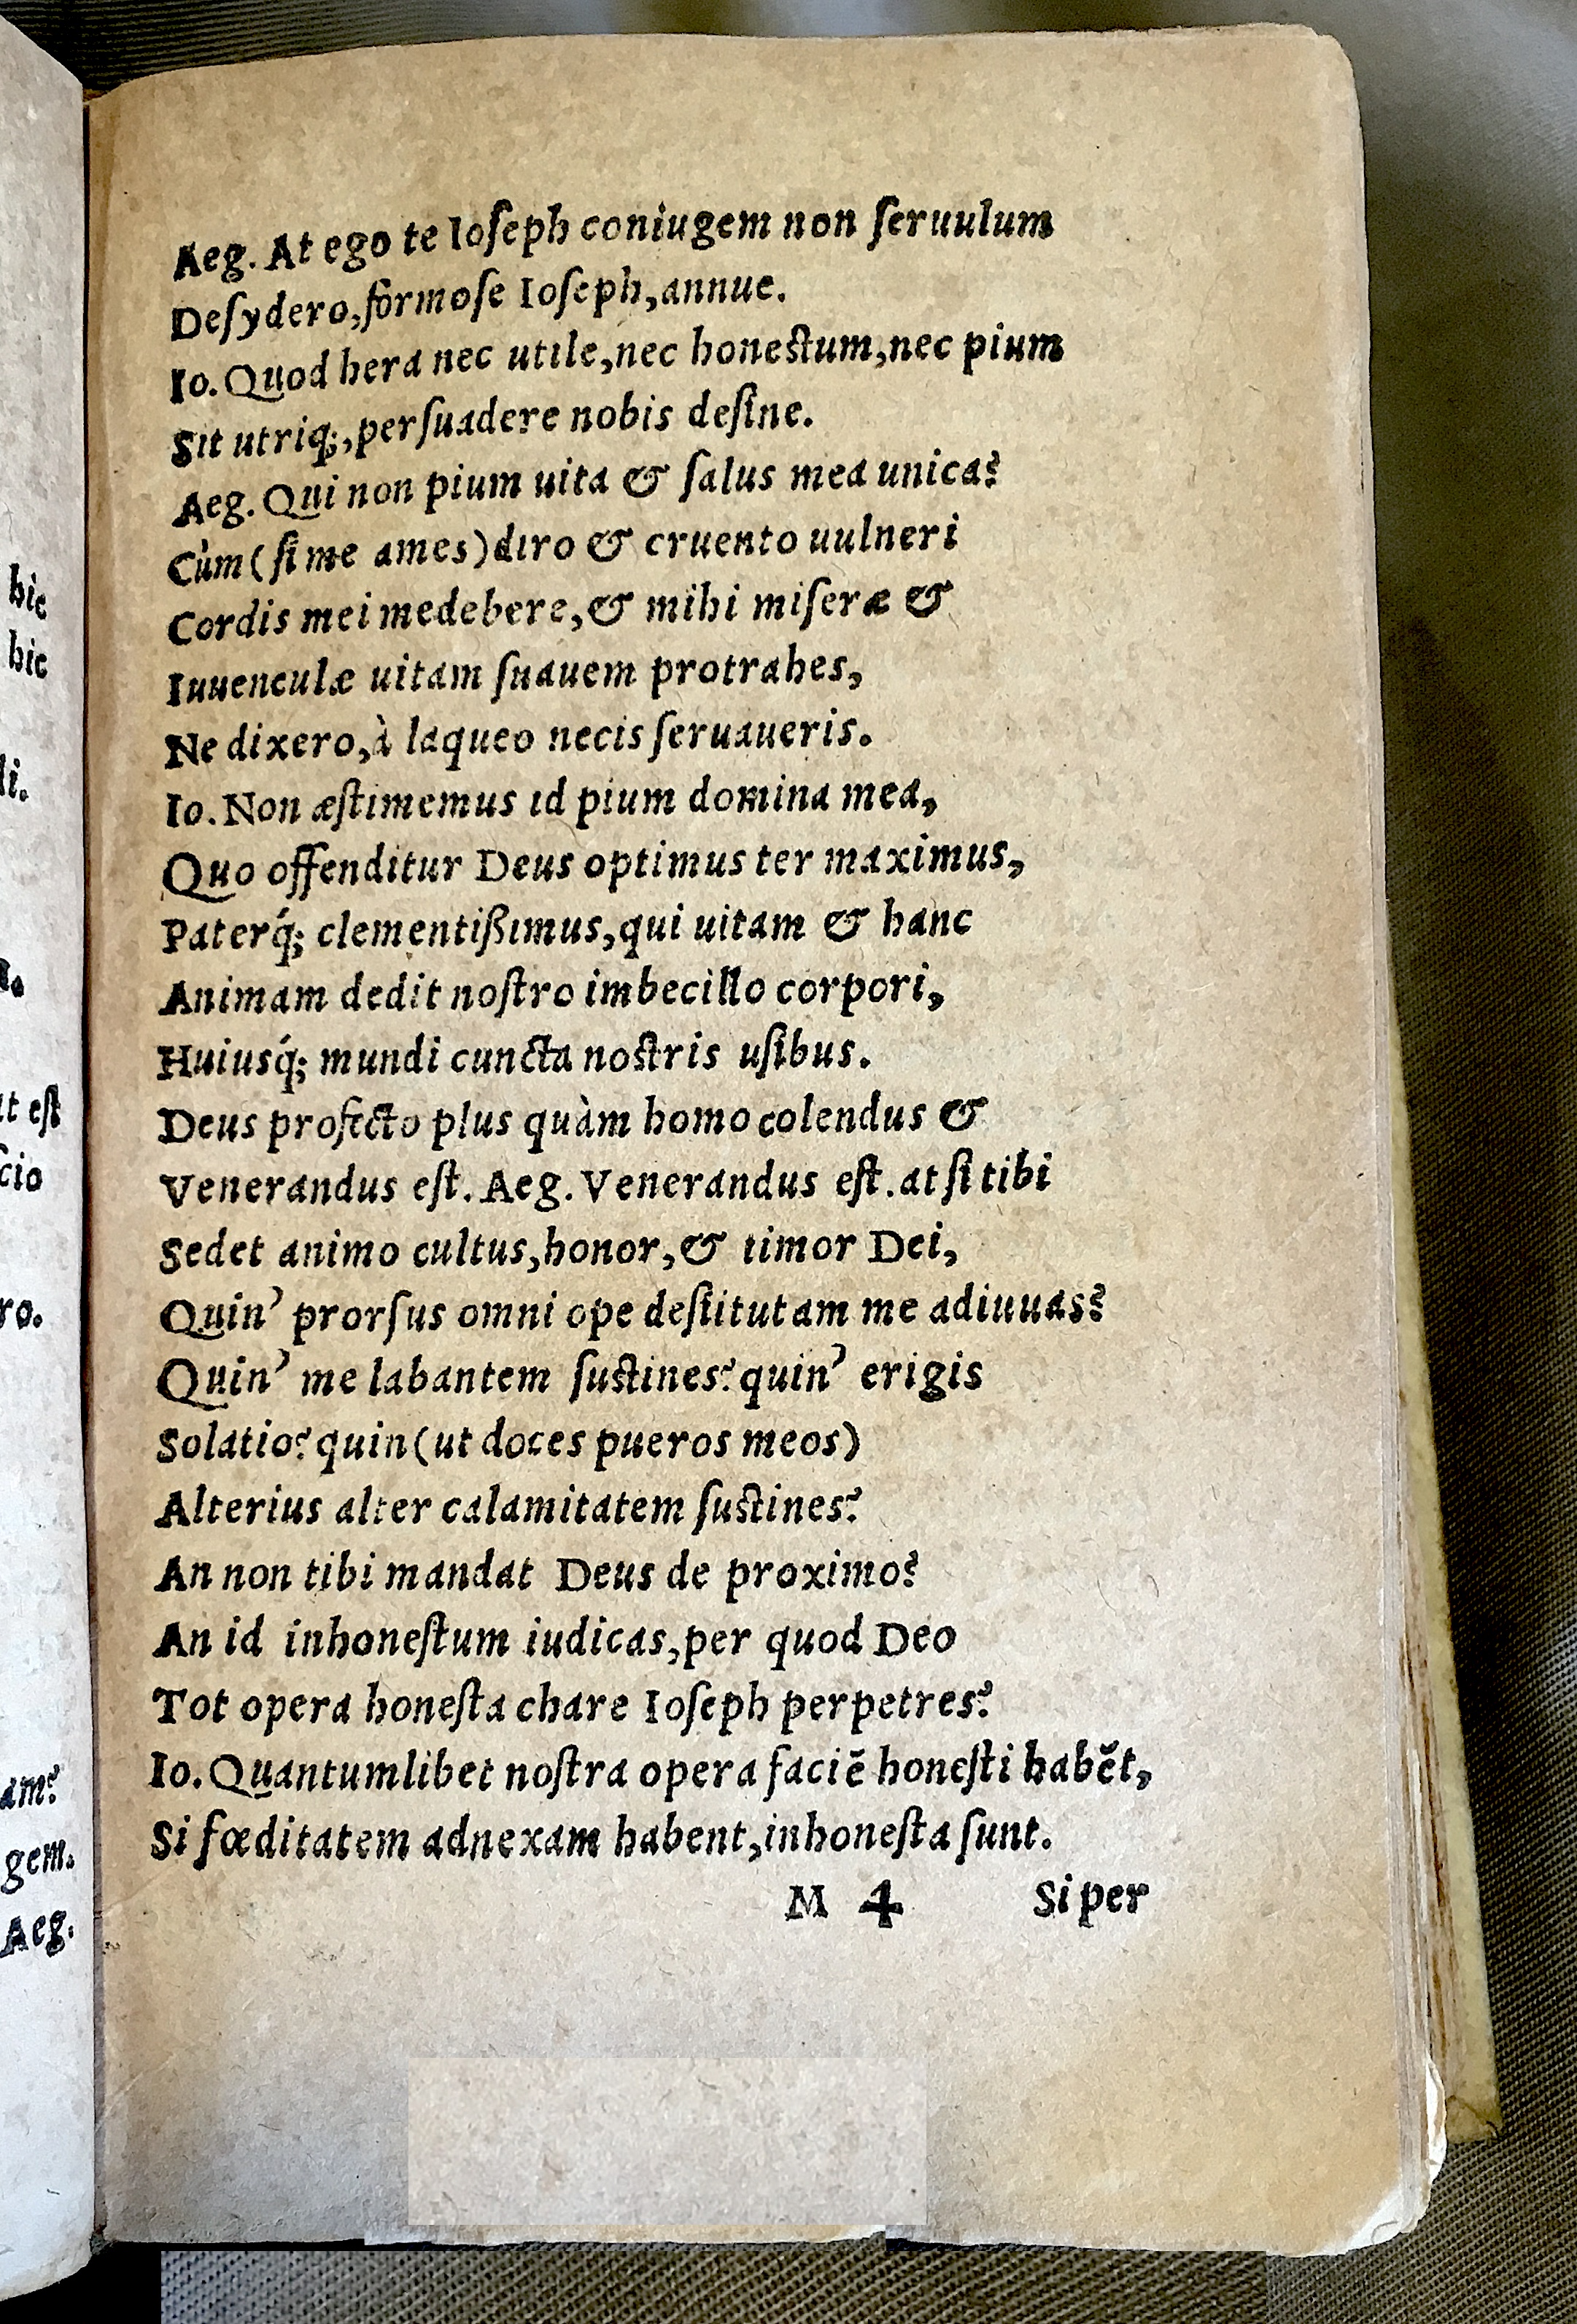 Aeg. At ego te Ioſeph coniugem non ſeruulum
Deſydero, formoſe Ioſeph, annue.
Io. Quod hera nec utile, nec honeſtum, nec pium
Sit utriq;, perſuadere nobis deſine.
Aeg. Qui non pium uita & ſalus mea unica?
Cùm (ſi me ames) diro & cruento uulneri
Cordis mei medebere, & mihi miſeræ &
Iuuenculæ uitam ſuauem protrahes,
Ne dixero, à laqueo necis ſeruaueris.
Io. Non æſtimemus id pium domina mea,
Quo offenditur Deus optimus ter maximus,
Paterq́; clementißimus, qui uitam & hanc
Animam dedit noſtro imbecillo corpori,
Huiusq́; mundi cuncta noſtris uſibus.
Deus profecto plus quàm homo colendus &
Venerandus eſt. Aeg. Venerandus eſt. at ſi tibi
Sedet animo cultus, honor, & timor Dei,
Quin' prorſus omni ope deſtitutam me adiuuas?
Quin' me labantem ſuſtines? quin' erigis
Solatio? quin (ut doces pueros meos)
Alterius alter calamitatem ſuſtines?
An non tibi mandat Deus de proximo?
An id inhoneſtum iudicas, per quod Deo
Tot opera honeſta chare Ioſeph perpetres?
Io. Quantumlibet noſtra opera faciē honeſti habēt,
Si fœditatem adnexam habent, inhoneſta ſunt.
M 4 Si per
hic
hic
li.
ut eſt
ſcio
ro.
am?
gem.
Aeg.